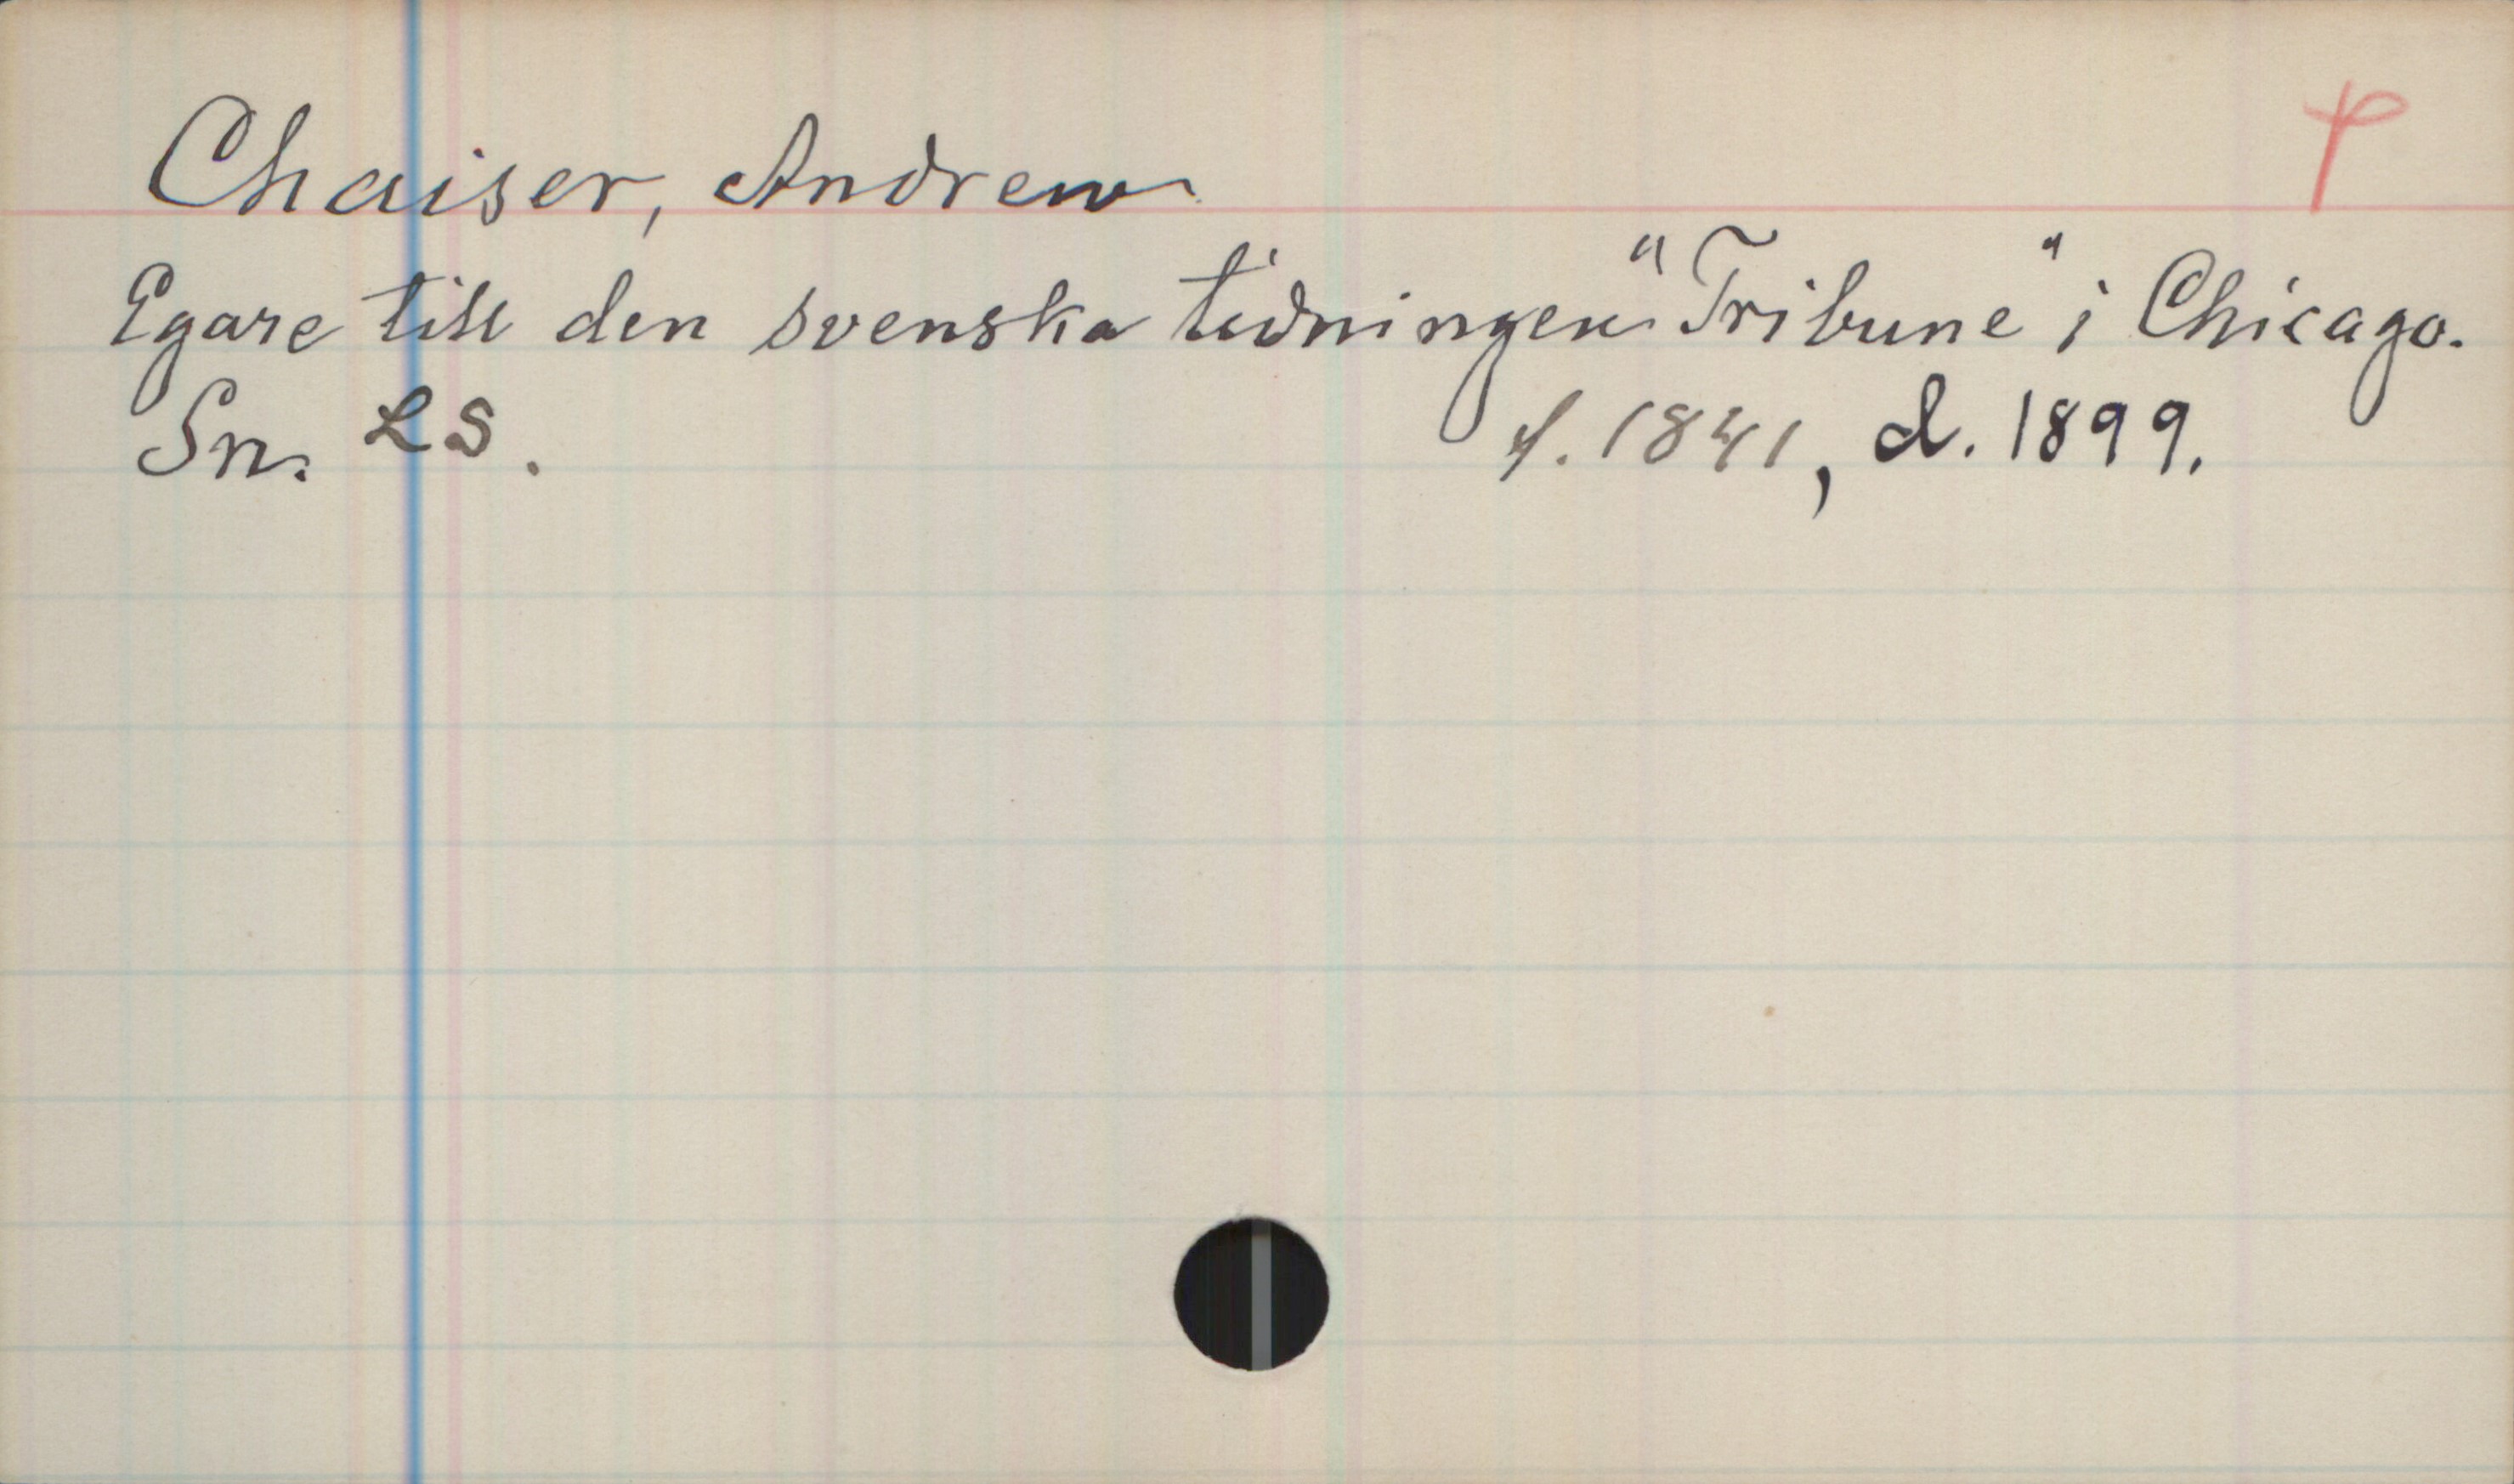 Chaiser, Andrew
Egare till den svenska tidningen "Tribune" i Chicago.
Sn. LS. f. 1841, d. 1899.